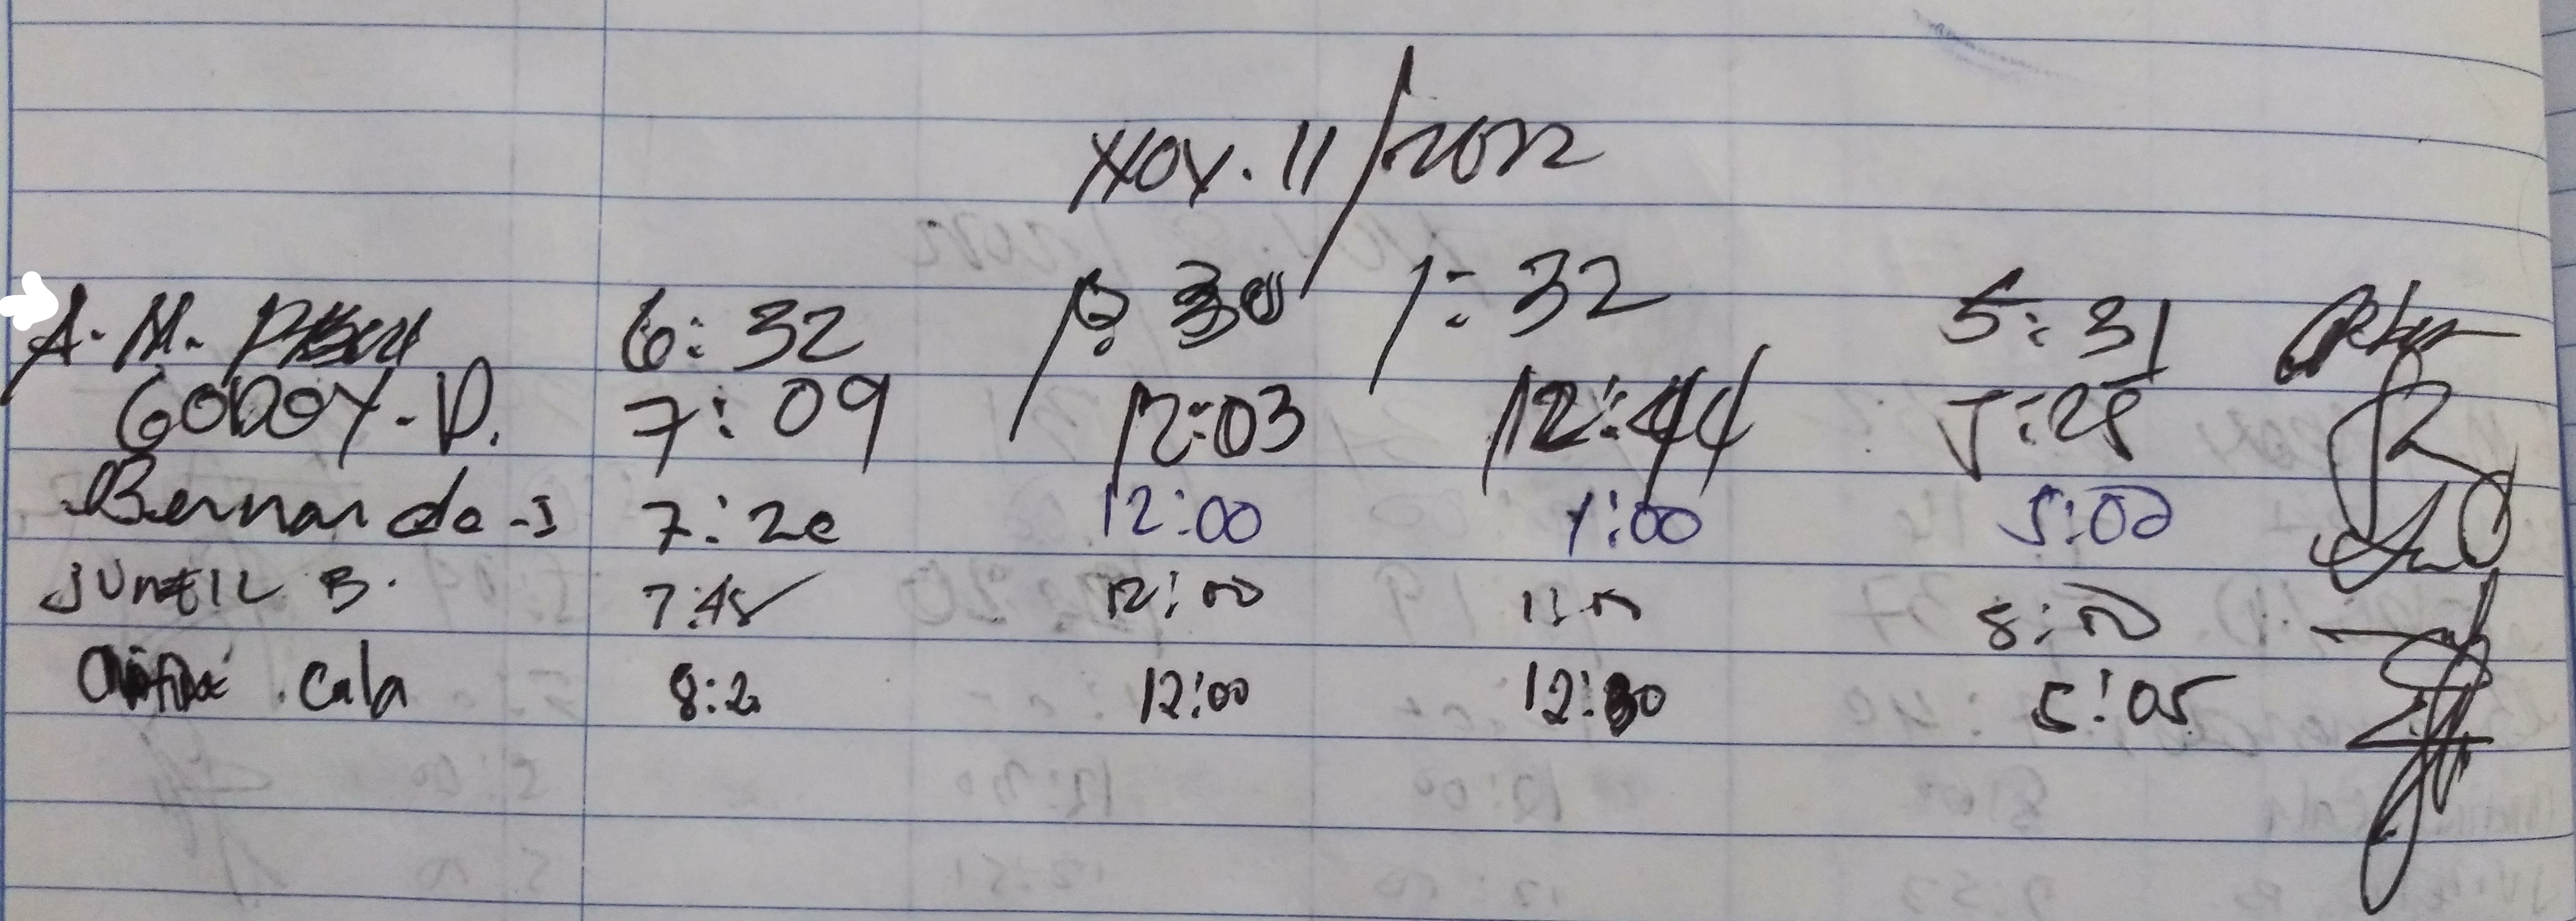 Nov. 11/2022
A. M. 6:32 1:32 5:31
GODOY-D. 7:09 12:03 12:44 5:28
Bernardo-J 7:20 12:00 1:00 5:00
JUNFIL B. 7:45 12:00 1:00 5:00
Cala 8:2 12:00 12:30 5:05